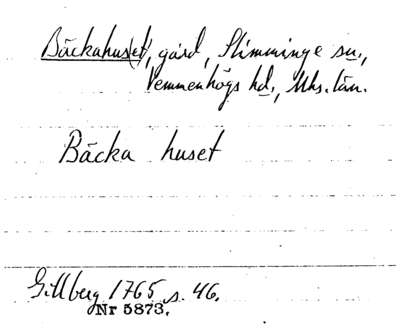 Bäckahus(et), gård, Slimminge sn.,
Vemmenhögs hd., Mhs. län.
Bäcka huset
Gillberg 1765 s. 46.
Nr 5873.